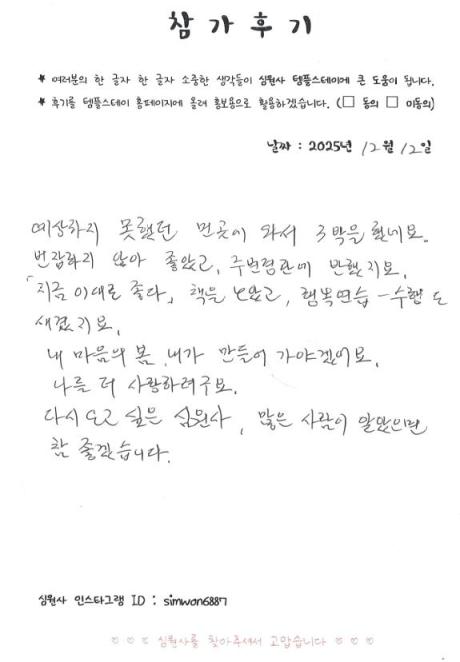 참가후기
* 여러분의 한 글자 한 글자 소중한 생각들이 심원사 템플스테이에 큰 도움이 됩니다.
* 후기를 템플스테이 홈페이지에 올려 홍보용으로 활용하겠습니다. (□ 동의 □ 미동의)
날짜 : 2025년 12월 12일
예상하지 못했던 먼곳에 와서 3박을 했네요.
번잡하지 않아 좋았고, 주변경관에 반했지요.
「지금 이대로 좋다」 책을 보았고, 행복연습 - 수행도
새겼지요.
내 마음의 봄 내가 만들어 가야겠어요.
나를 더 사랑하려구요.
다시 오고 싶은 심원사, 많은 사람이 알았으면
참 좋겠습니다.
심원사 인스타그램 ID : simwon6887
♡ ♡ ♡ 심원사를 찾아주셔서 고맙습니다 ♡ ♡ ♡